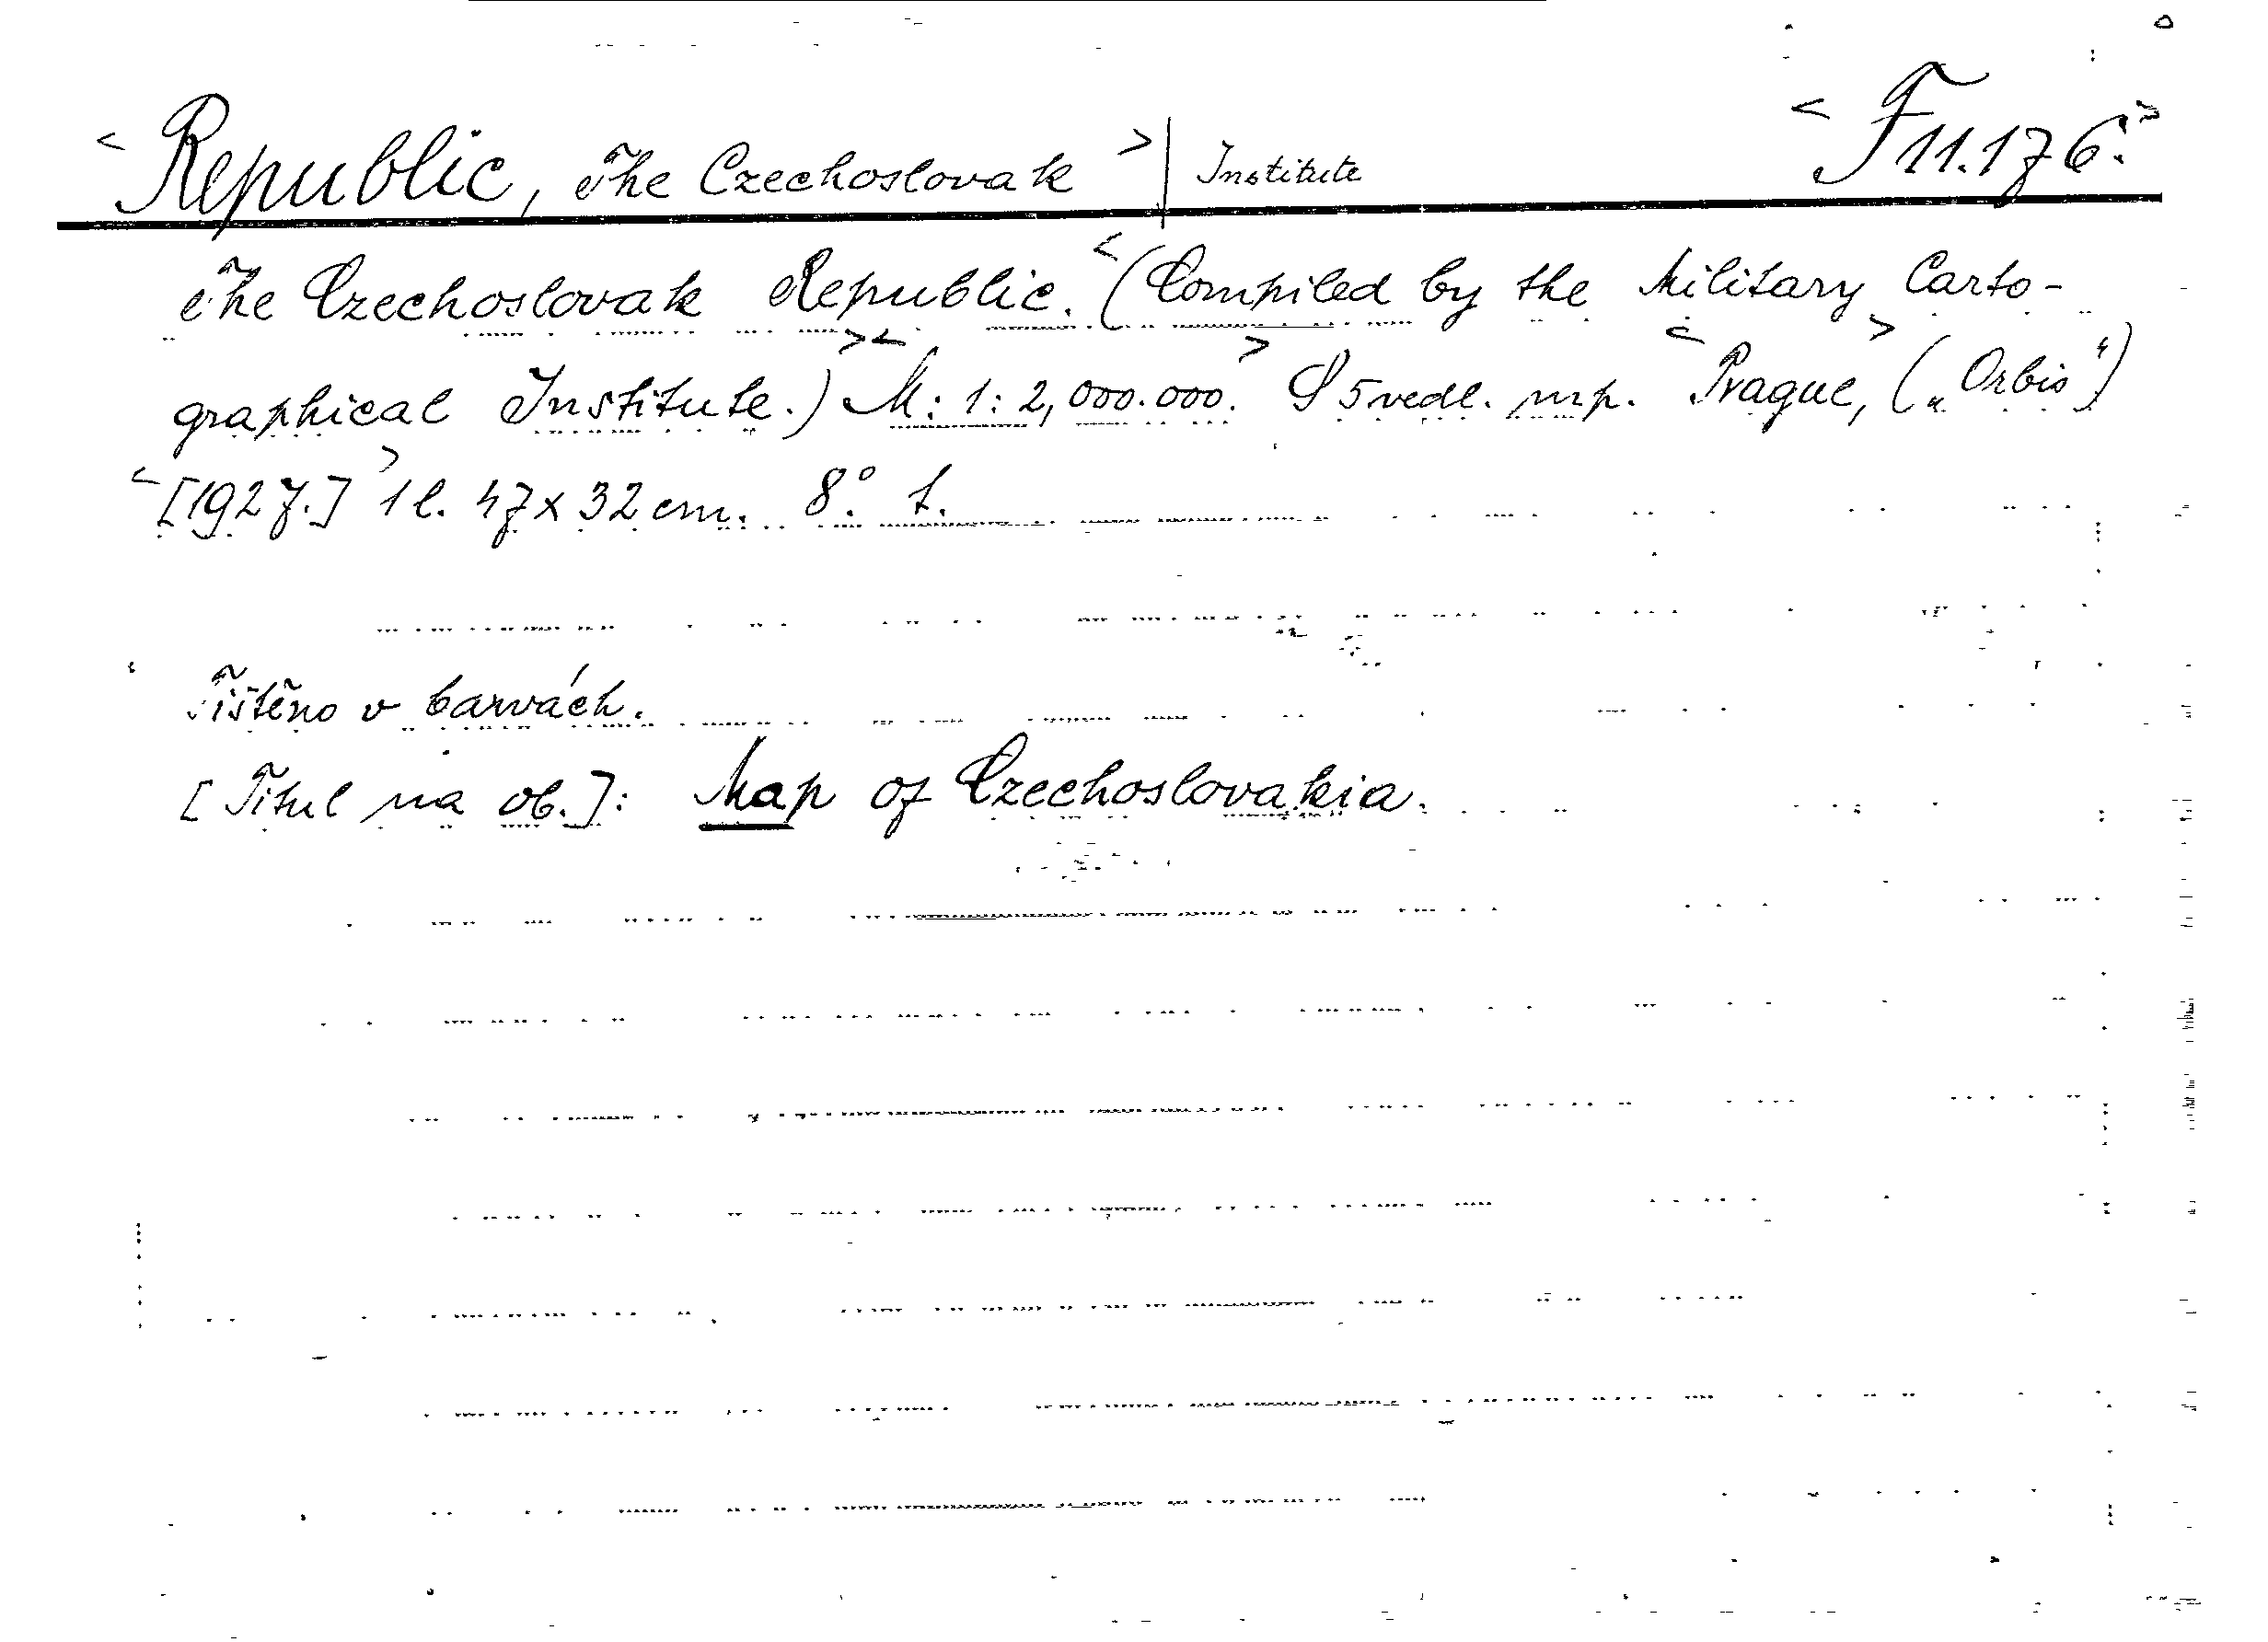 < Republic, The Czechoslovak > | Institute < F 11.176. >
The Czechoslovak Republic. < (Compiled by the Military Carto-
graphical Institute.) > < M: 1: 2,000.000. > S 5 vedl. mp. < Prague, > („Orbis“)
< [1927.] > 1 l. 47 x 32 cm. 8°. t.
Tištěno v barvách.
[Titul na ob.]: Map of Czechoslovakia.